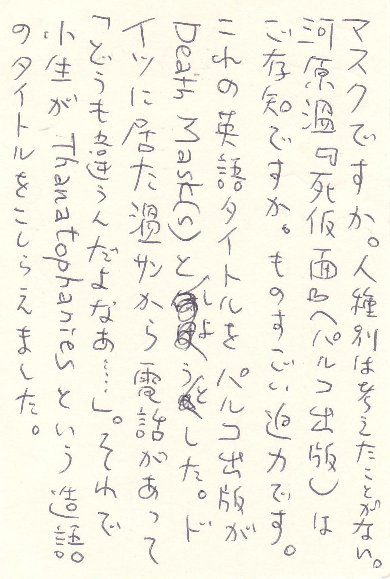 マスクですか。人種別は考えたことがない。
河原温『死仮面』(パルコ出版)は
ご存知ですか。ものすごい迫力です。
これの英語タイトルを パルコ出版が
Death Mask(s)としようとした。ド
イツに居た温サンから電話があって
「どうも違うんだよなあ……」。それで
小生が Thanatophanies という造語
のタイトルをこしらえました。